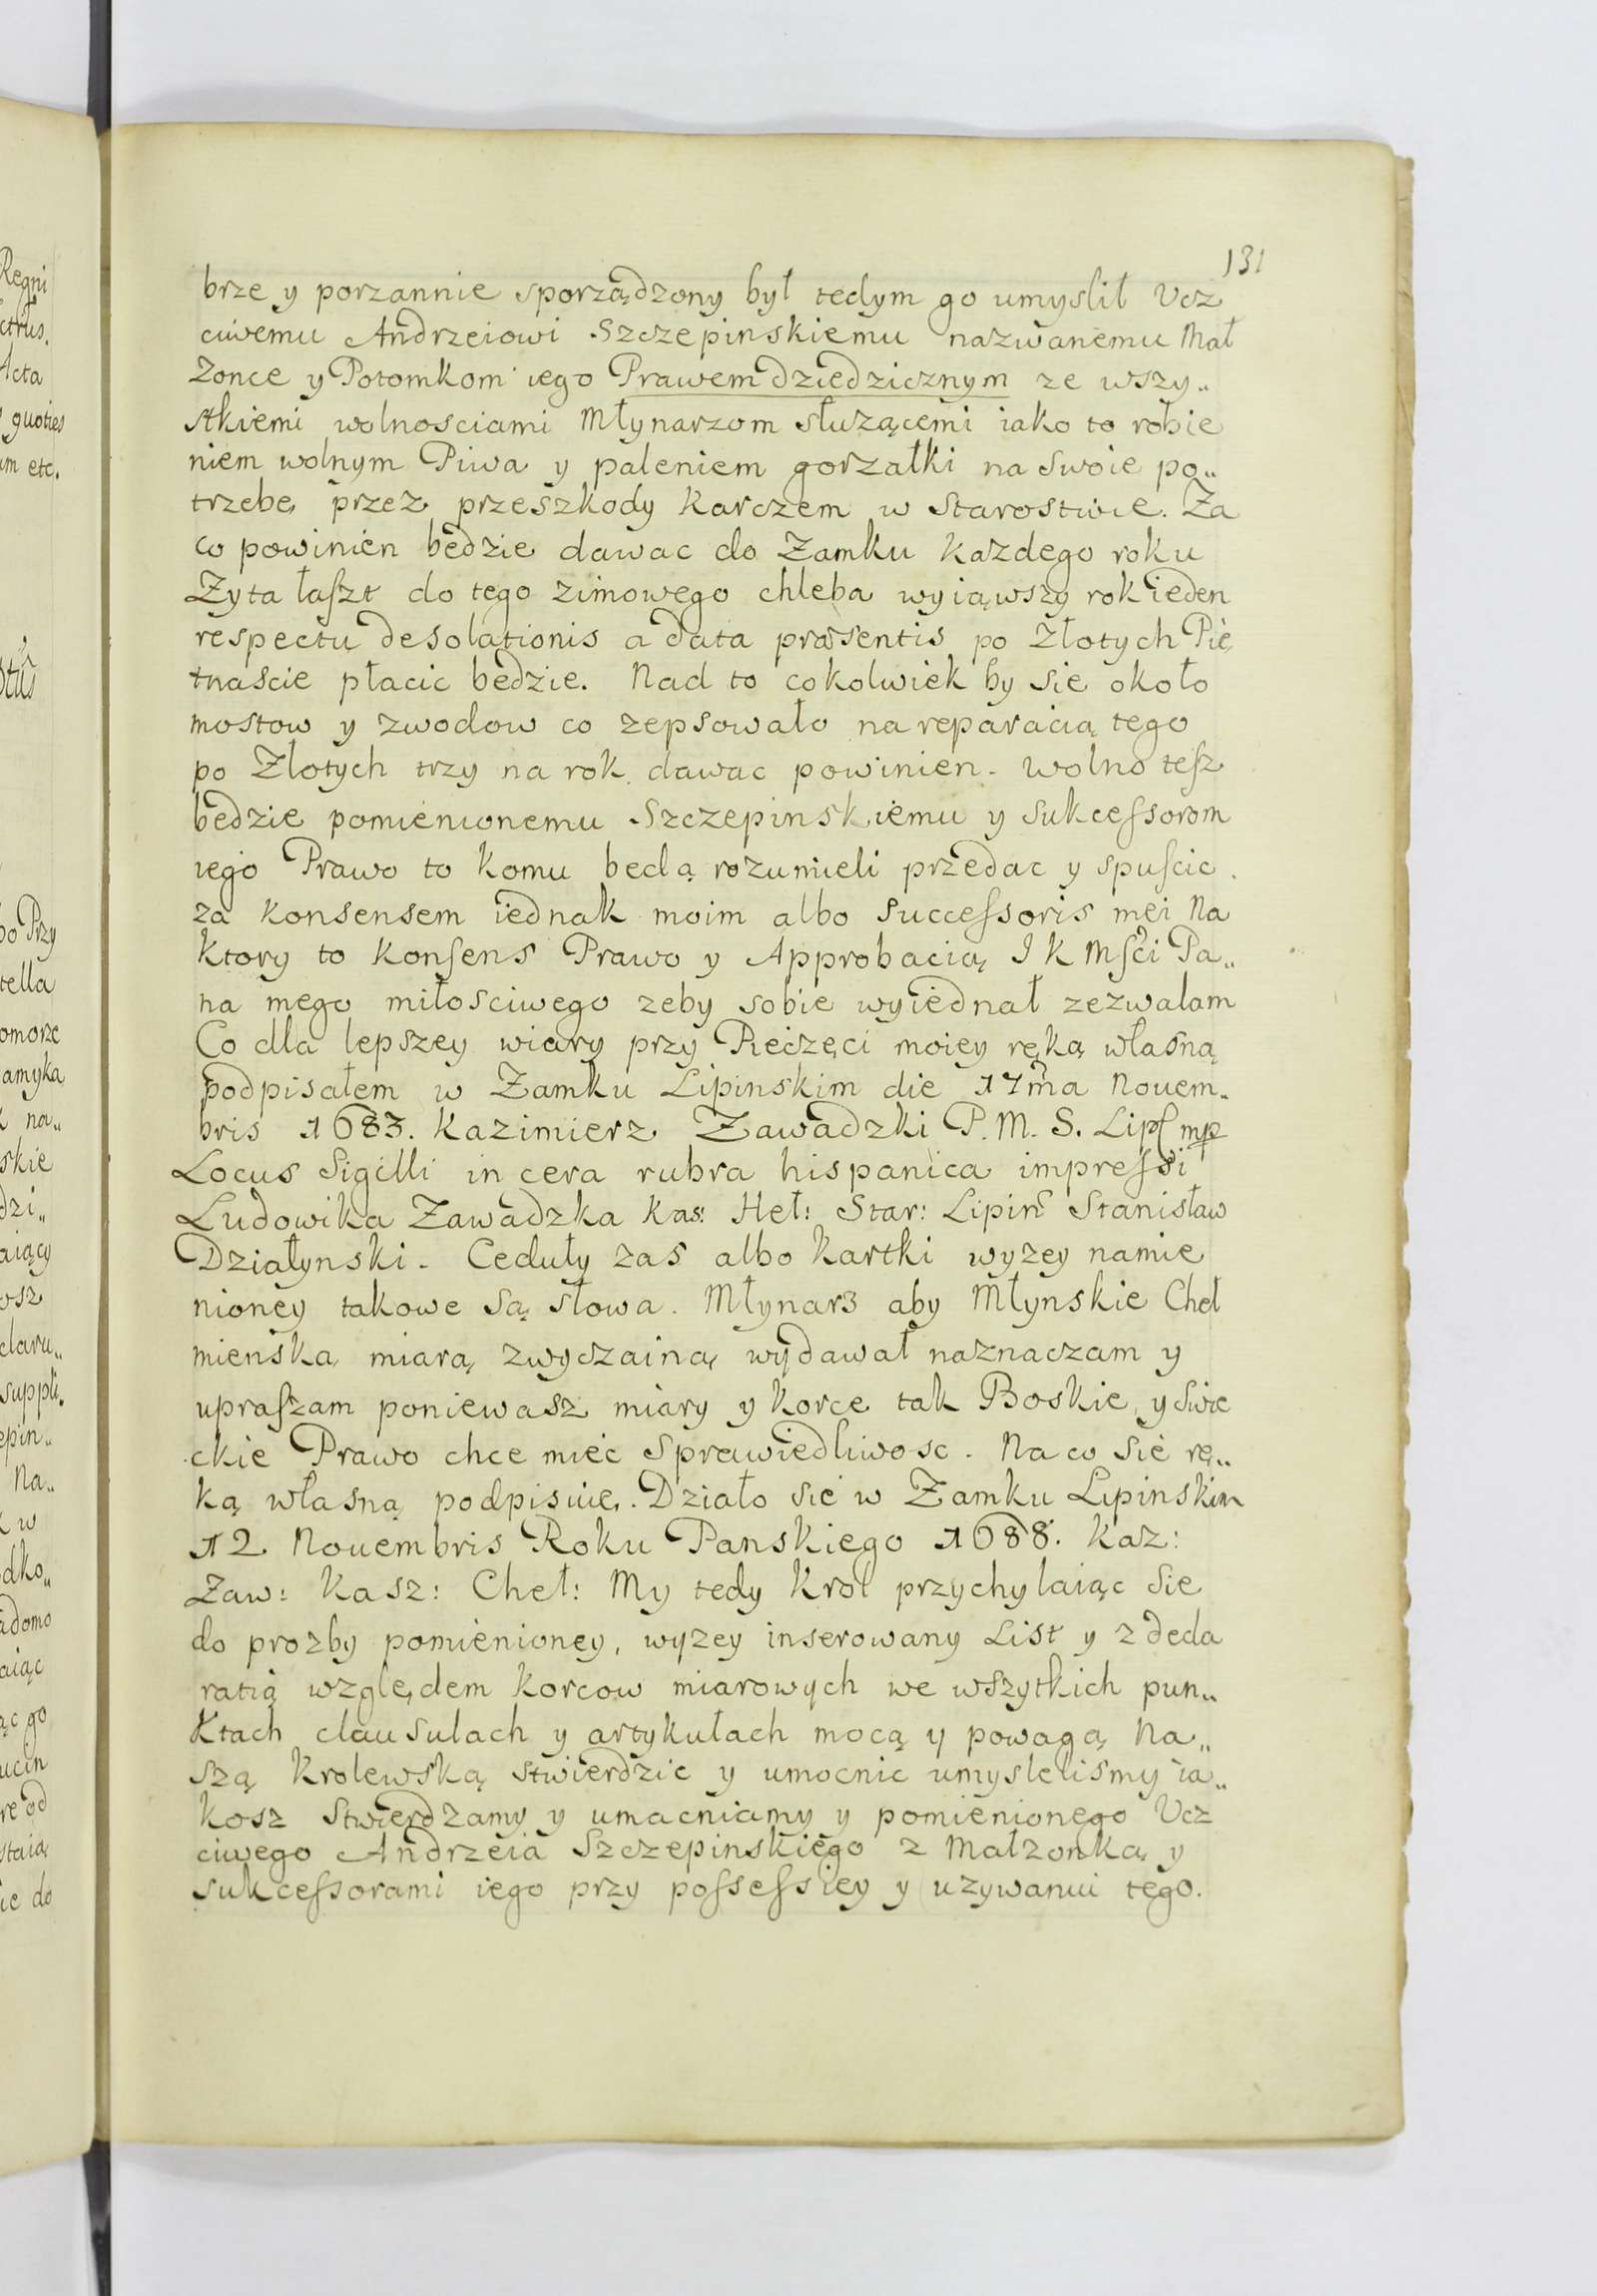 131
brze y porzannie sporządzony był tedym go umyslił Vcz
ciwemu Andrzeiowi Szczepinskiemu nazwanemu Mał
Zonce y Potomkom iego Prawem dziedzicznym ze wszy„
stkiemi wolnosciami Młynarzom służącemi iako to robie
niem wolnym Piwa y paleniem gorzałki na swoie po„
trzebę przez przeszkody Karczem w Starostwie. Za
co powinien będzie dawac do Zamku Kazdego roku
Zyta łaszt do tego zimowego chleba wyiąwszy rok ieden
respectu desolationis a data præsentis po Złotych Pię
tnascie płacic będzie. Nad to cokolwiek by się około
mostow y zwodow co zepsowało na reparacią tego
po Złotych trzy na rok dawac powinien. Wolno tesz
będzie pomienionemu Szczepinskiemu y Sukcessorom
iego Prawo to Komu będą rozumieli przedac y spuscic
za Konsensem iednak moim albo Successoris mei Na
Ktory to Konsens Prawo y Approbacią J K Mści Pa„
na mego miłosciwego zeby sobie wyiednał zezwalam
Co dla lepszey wiary przy Pieczęci moiey ręką własną
podpisałem w Zamku Lipinskim die 17ma Nouem„
bris 1683. Kazimierz Zawadzki P. M. S. Lips mp
Locus Sigilli in cera rubra hispanica impressi
Ludowika Zawadzka Kas: Heł: Star: Lipin Stanisław
Działynski. Ceduły zas albo Kartki wyzey namie
nioney takowe są słowa. Młynarz aby Młynskie Cheł
mienską miarą zwyczainą wydawał naznaczam y
upraszam poniewasz miary y Korce tak Boskie, y Swie
ckie Prawo chce miec Sprawiedliwosc. Na co się rę„
ką własną podpisuię. Działo się w Zamku Lipinskim
12 Nouembris Roku Panskiego 1688. Kaz:
Zaw: Kasz: Cheł: My tedy Krol przychylaiąc się
do prozby pomienioney, wyzey inserowany List y z decla
ratią względem Korcow miarowych we wszytkich pun„
Ktach clausulach y artykułach mocą y powagą Na„
szą Krolewską stwierdzic y umocnic umyslelismy ia„
Kosz Stwierdzamy y umacniamy y pomienionego Vcz
ciwego Andrzeia Szczepinskiego z Małzonką y
sukcessorami iego przy possessiey y uzywaniu tego.